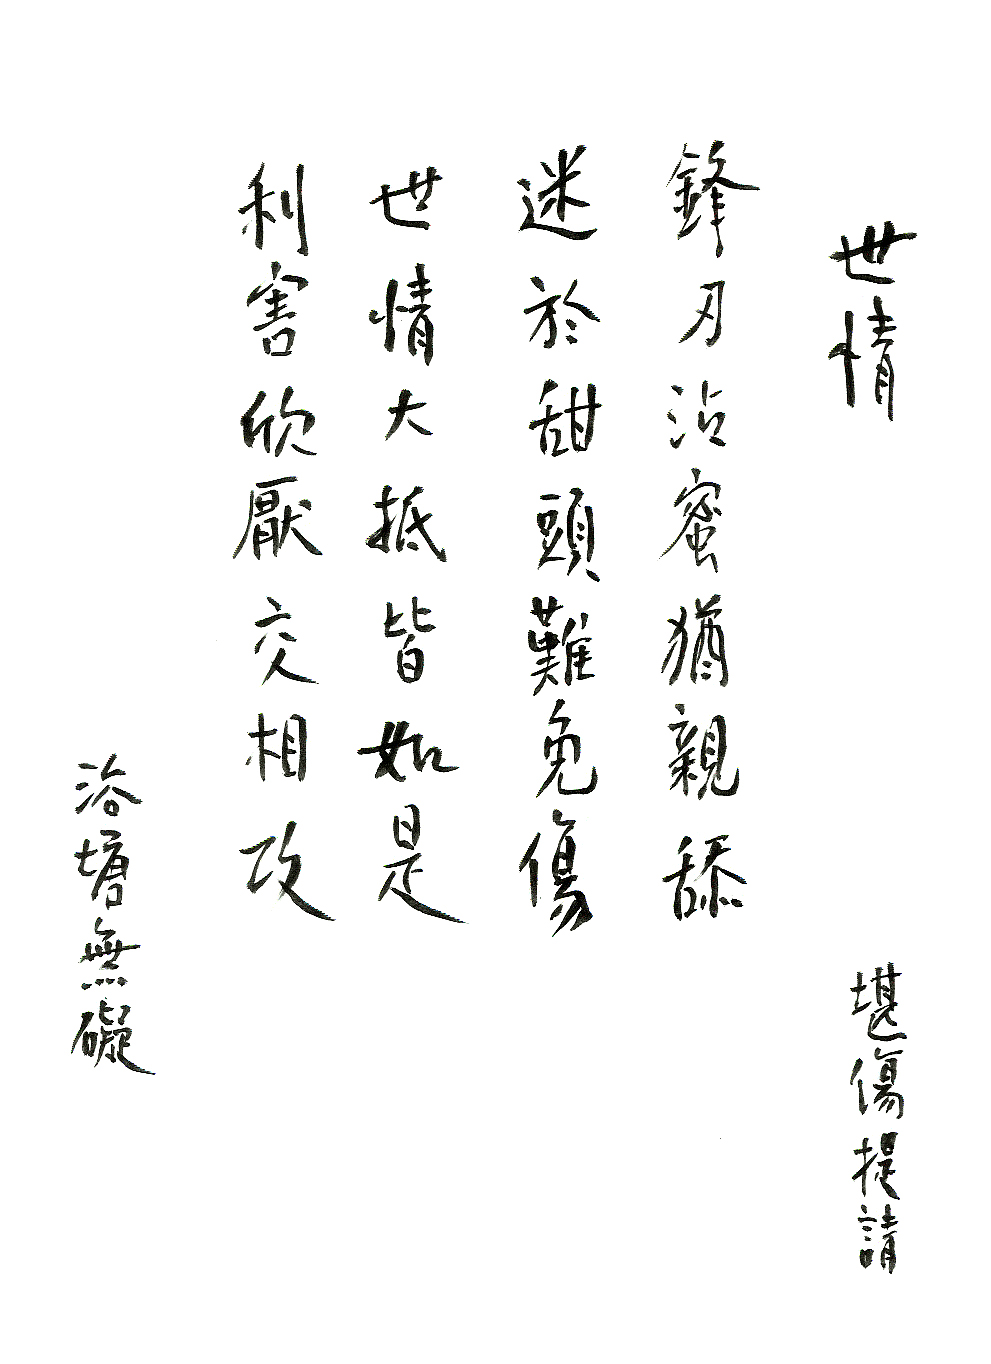 世情
堪傷提請
鋒刃沾蜜猶親舔
迷於甜頭難免傷
世情大抵皆如是
利害欣厭交相攻
浴塘無礙